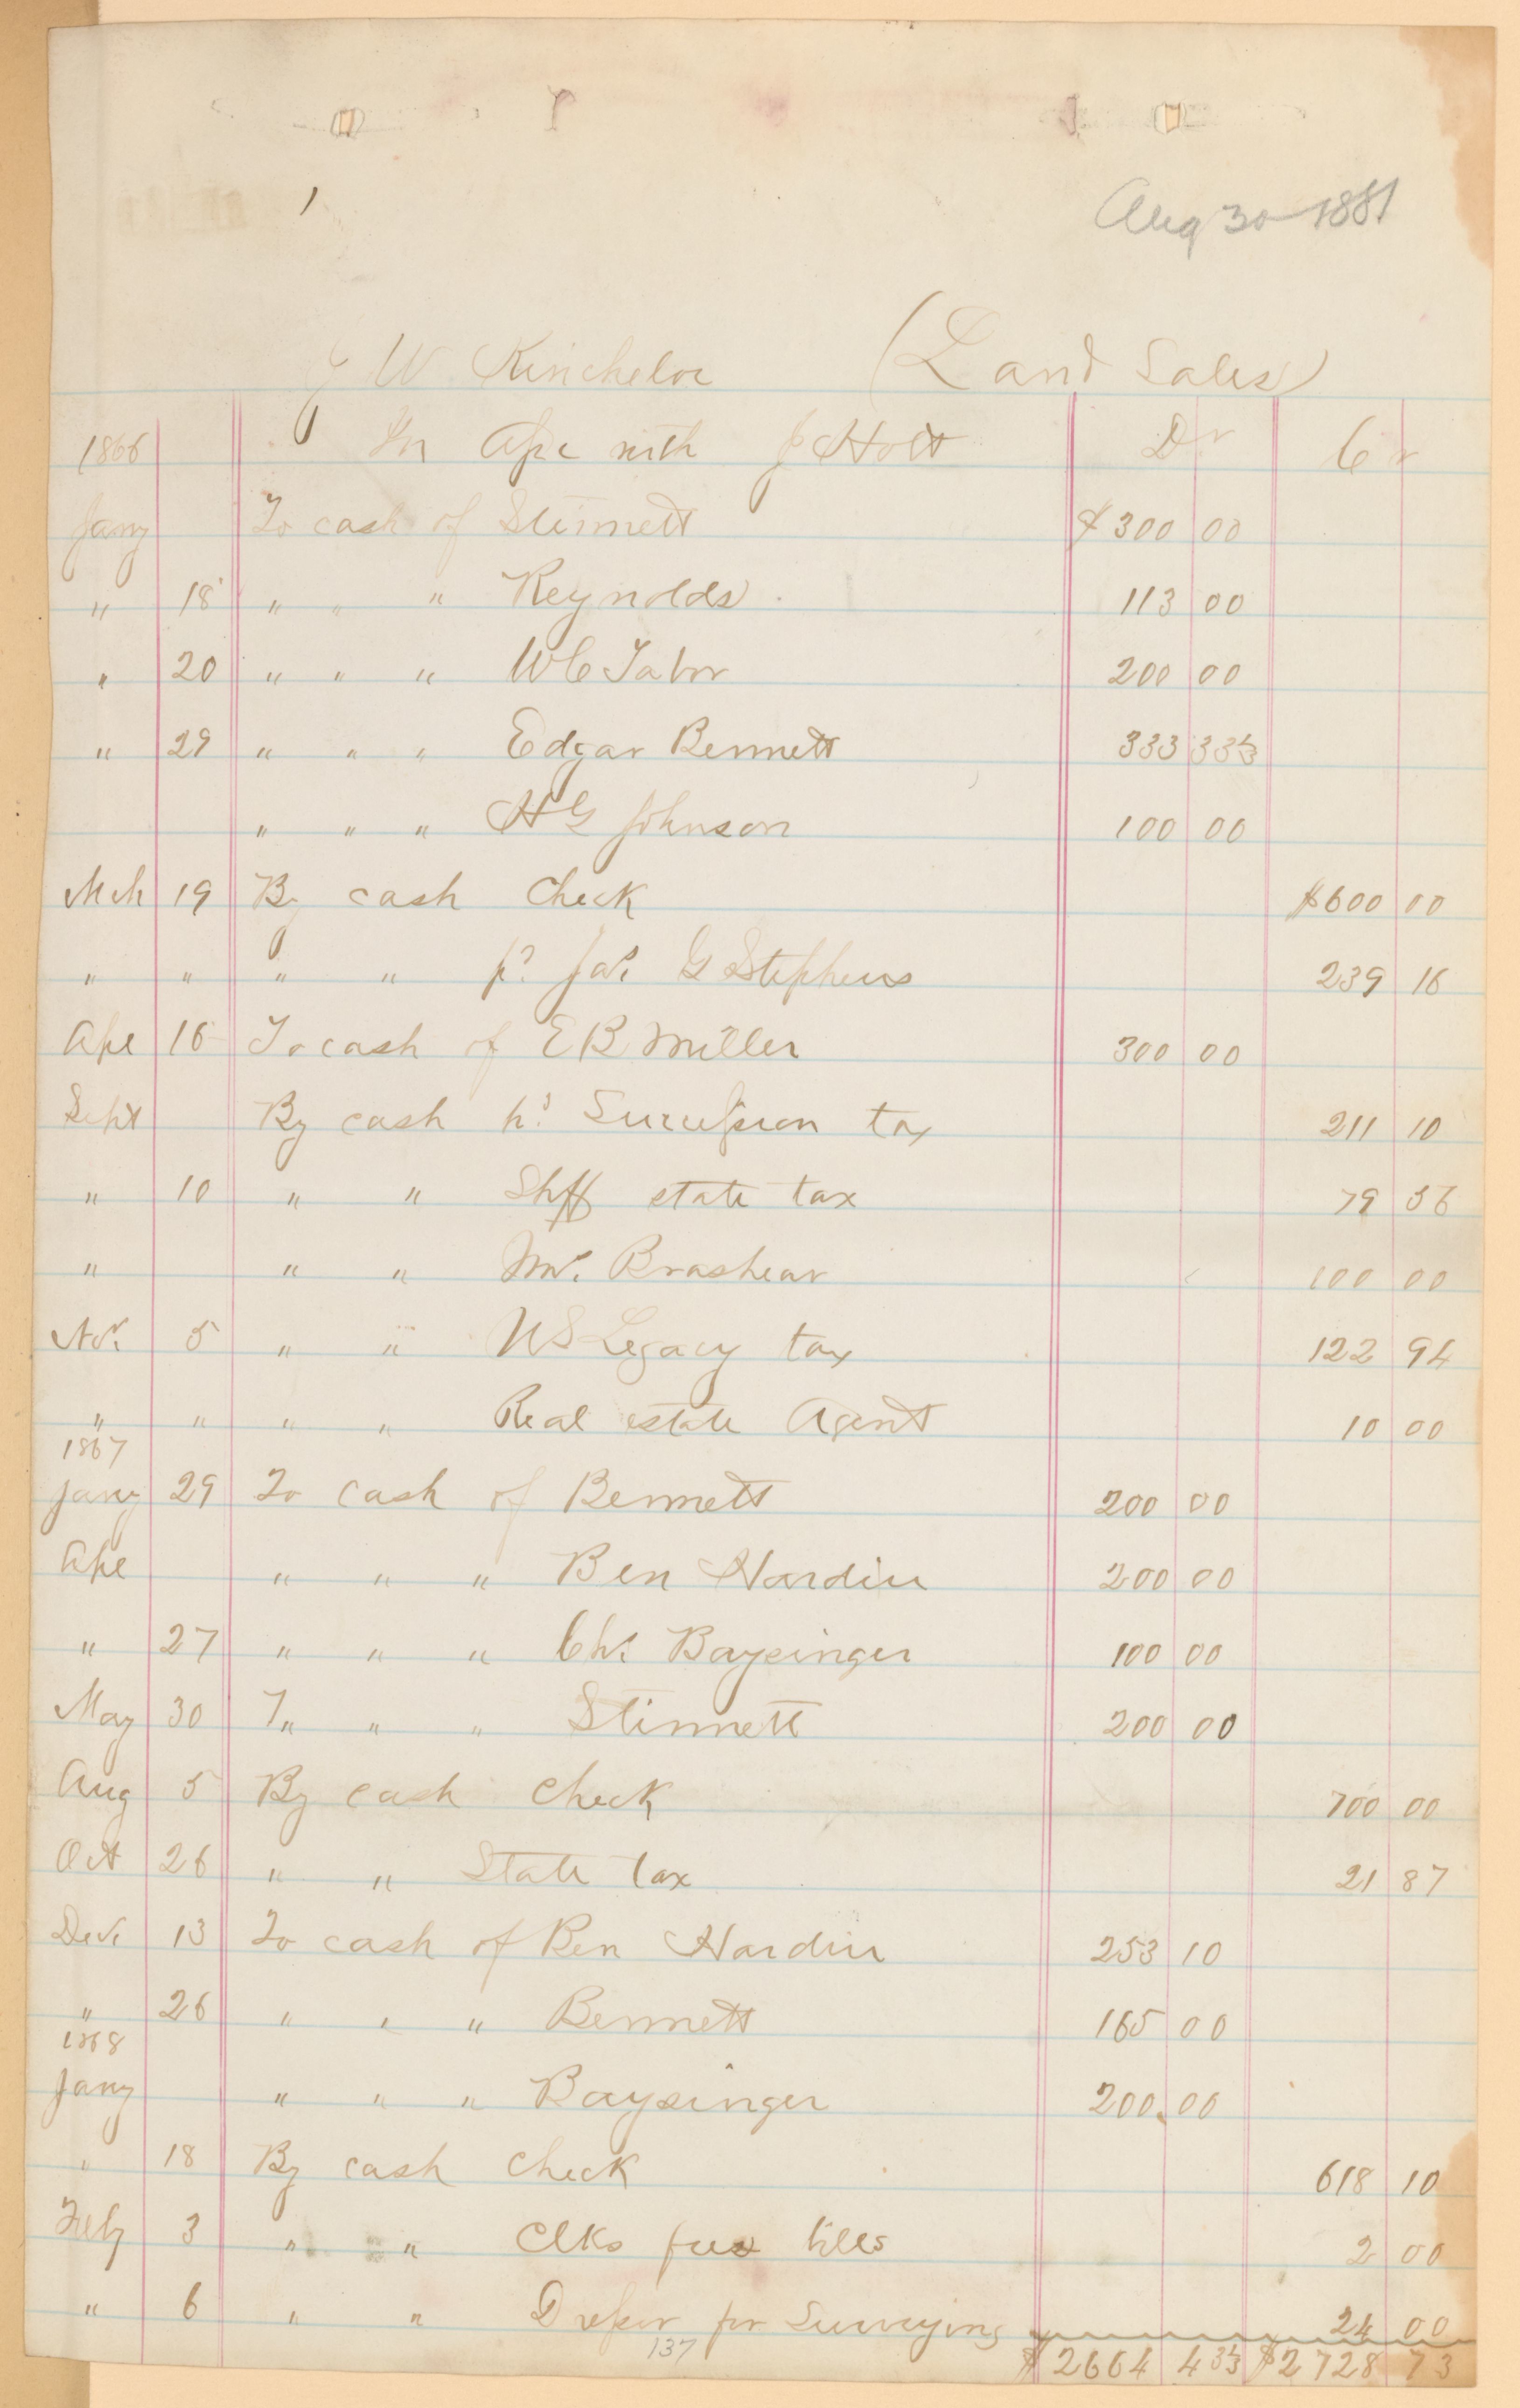 1
Aug 30 1881
J W Kincheloe (Land Sales)
1866 In Apc with J Holt Dr Cr
Jany To cash of Stinnett $300 00
" 18 " " " Reynolds. 113 00
" 20 " " " W C Tabor 200 00
" 29 " " " Edgar Bennett 333 33⅓
" " " H G Johnson 100 00
Mch 19 By cash Check $600 00
" " " " pd. Jas. G Stephens 239 16
Ape 16 To cash of E B Miller 300 00
Sept By cash pd. Succession tax 211 10
" 10 " " Shff state tax 79 56
" " " Mr. Brashear 100 00
Nov. 5 " " US Legacy tax 122 94
" " " " Real estate Agent 10 00
1867
Jany 29 To cash of Bennett 200 00
Ape " " " Ben Hardin 200 00
" 27 " " " Chs. Baysinger 100 00
May 30 T" " " Stinnett 200 00
Aug 5 By cash check 700 00
Oct 26 " " State tax 21 87
Dec. 13 To cash of Ben Hardin 253 10
" 26 " " " Bennett 165 00
1868
Jany " " " Baysinger 200.00
" 18 By cash check 618 10
Feby 3 " " Clks fees 2 00
" 6 " " for Surveying 24 00
137
$2664 43⅓ $2728 73